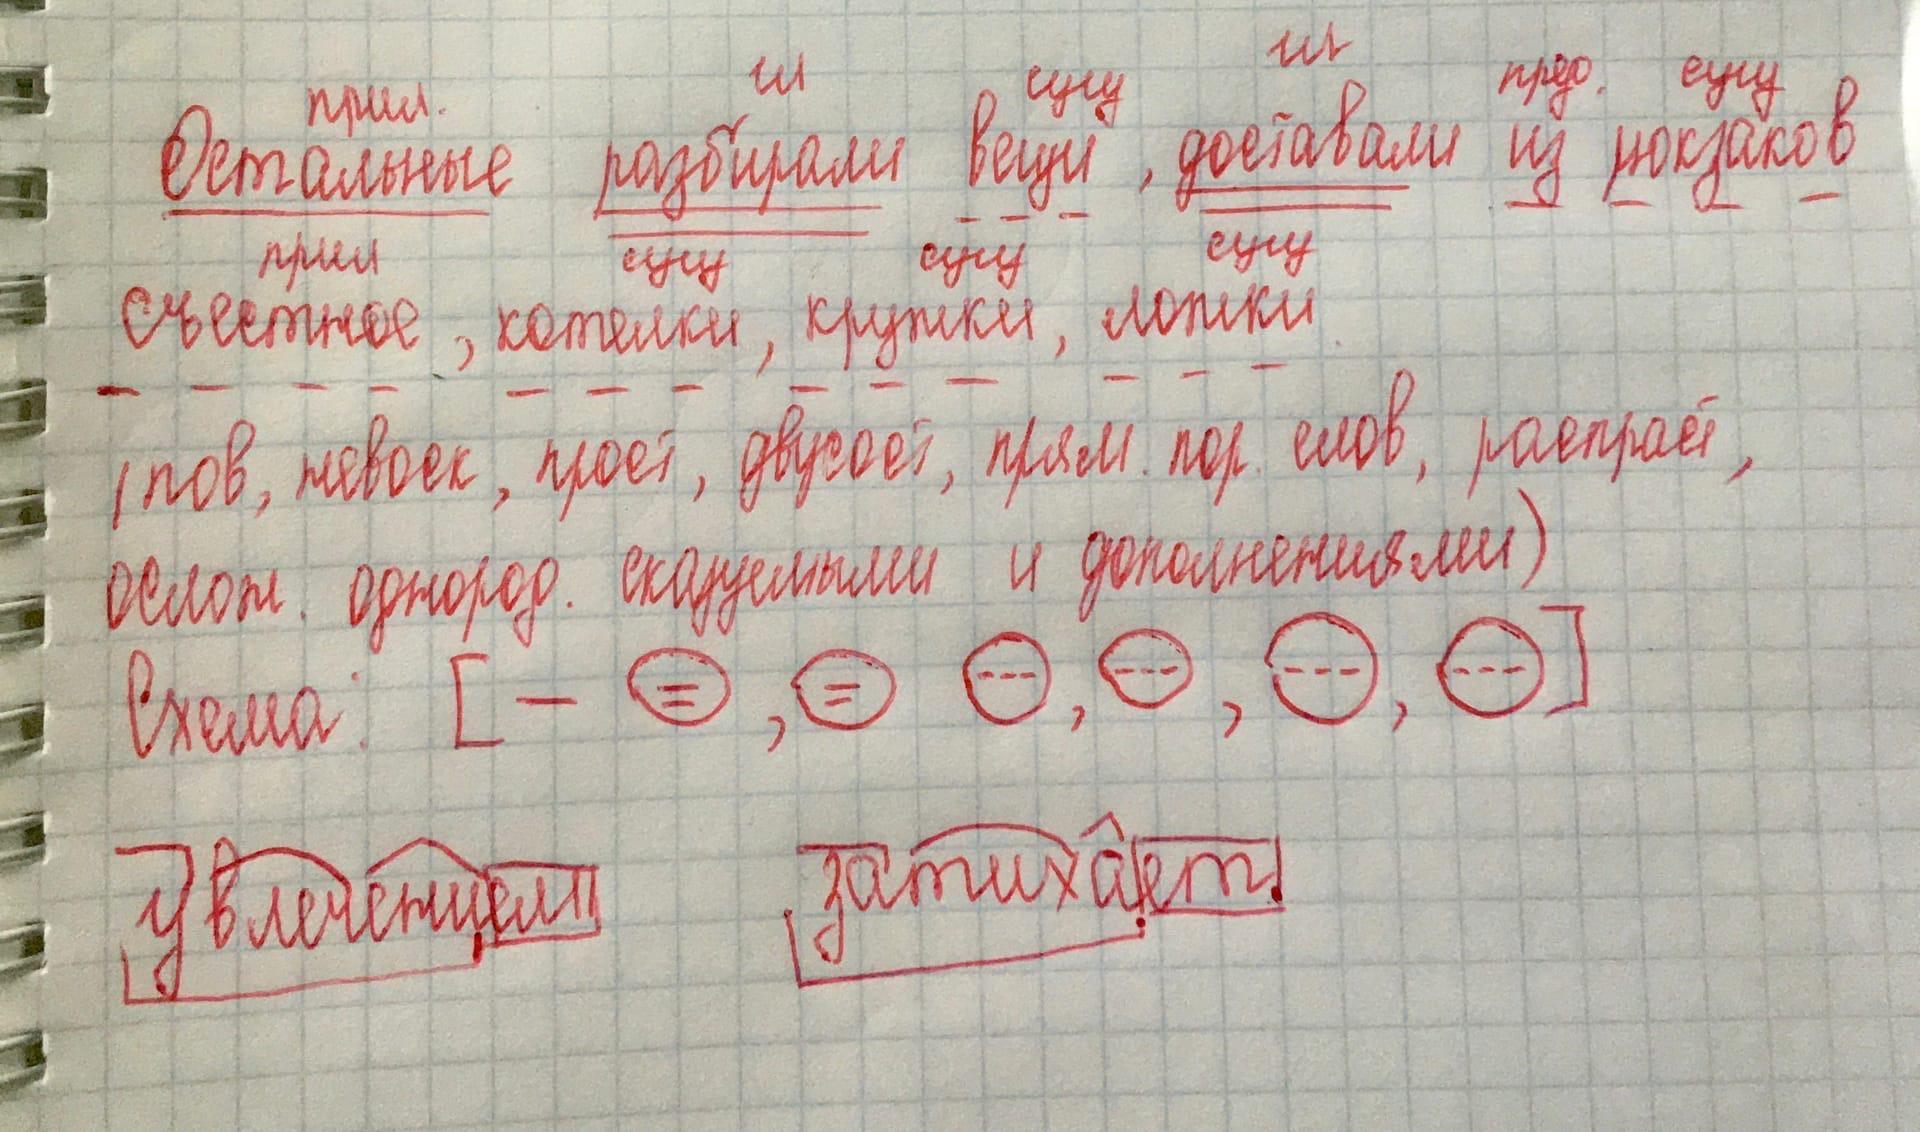 прил. гл сущ гл пред. сущ
Остальные разбирали вещи, доставали из рюкзаков
прил сущ сущ сущ
съестное, котелки, кружки, ложки.
(пов, невоск, прост, двусост, прям. пор. слов, распраст,
ослож. однород. сказуемыми и дополнениями)
Схема: [— =, = ---, ---, ---, ---]
увлечением затихает